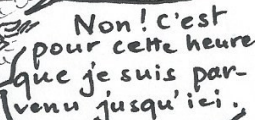 Non! C'est
pour cette heure
que je suis par-
venu jusqu'ici.